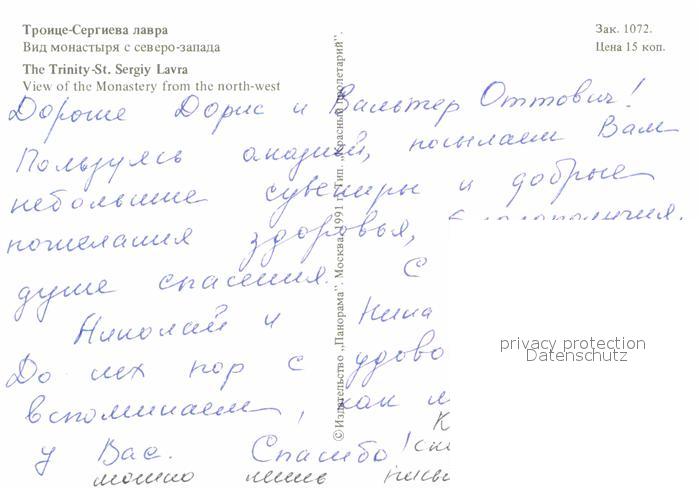 Троице-Сергиева лавра
Вид монастыря с северо-запада
The Trinity-St. Sergiy Lavra
View of the Monastery from the north-west
Зак. 1072.
Цена 15 коп.
© Издательство „Панорама”. Москва. 1991 г. Тип. „Красный пролетарий”.
Дорогие Дорис и Вальтер Оттович!
Пользуясь оказией, посылаем Вам
небольшие сувениры и добрые
пожелания здоровья, благополучия.
душе спасения. С
Николай и Нина
До сих пор с удово
вспоминаем, как
у Вас. Спасибо!
можно лишь
privacy protection
Datenschutz